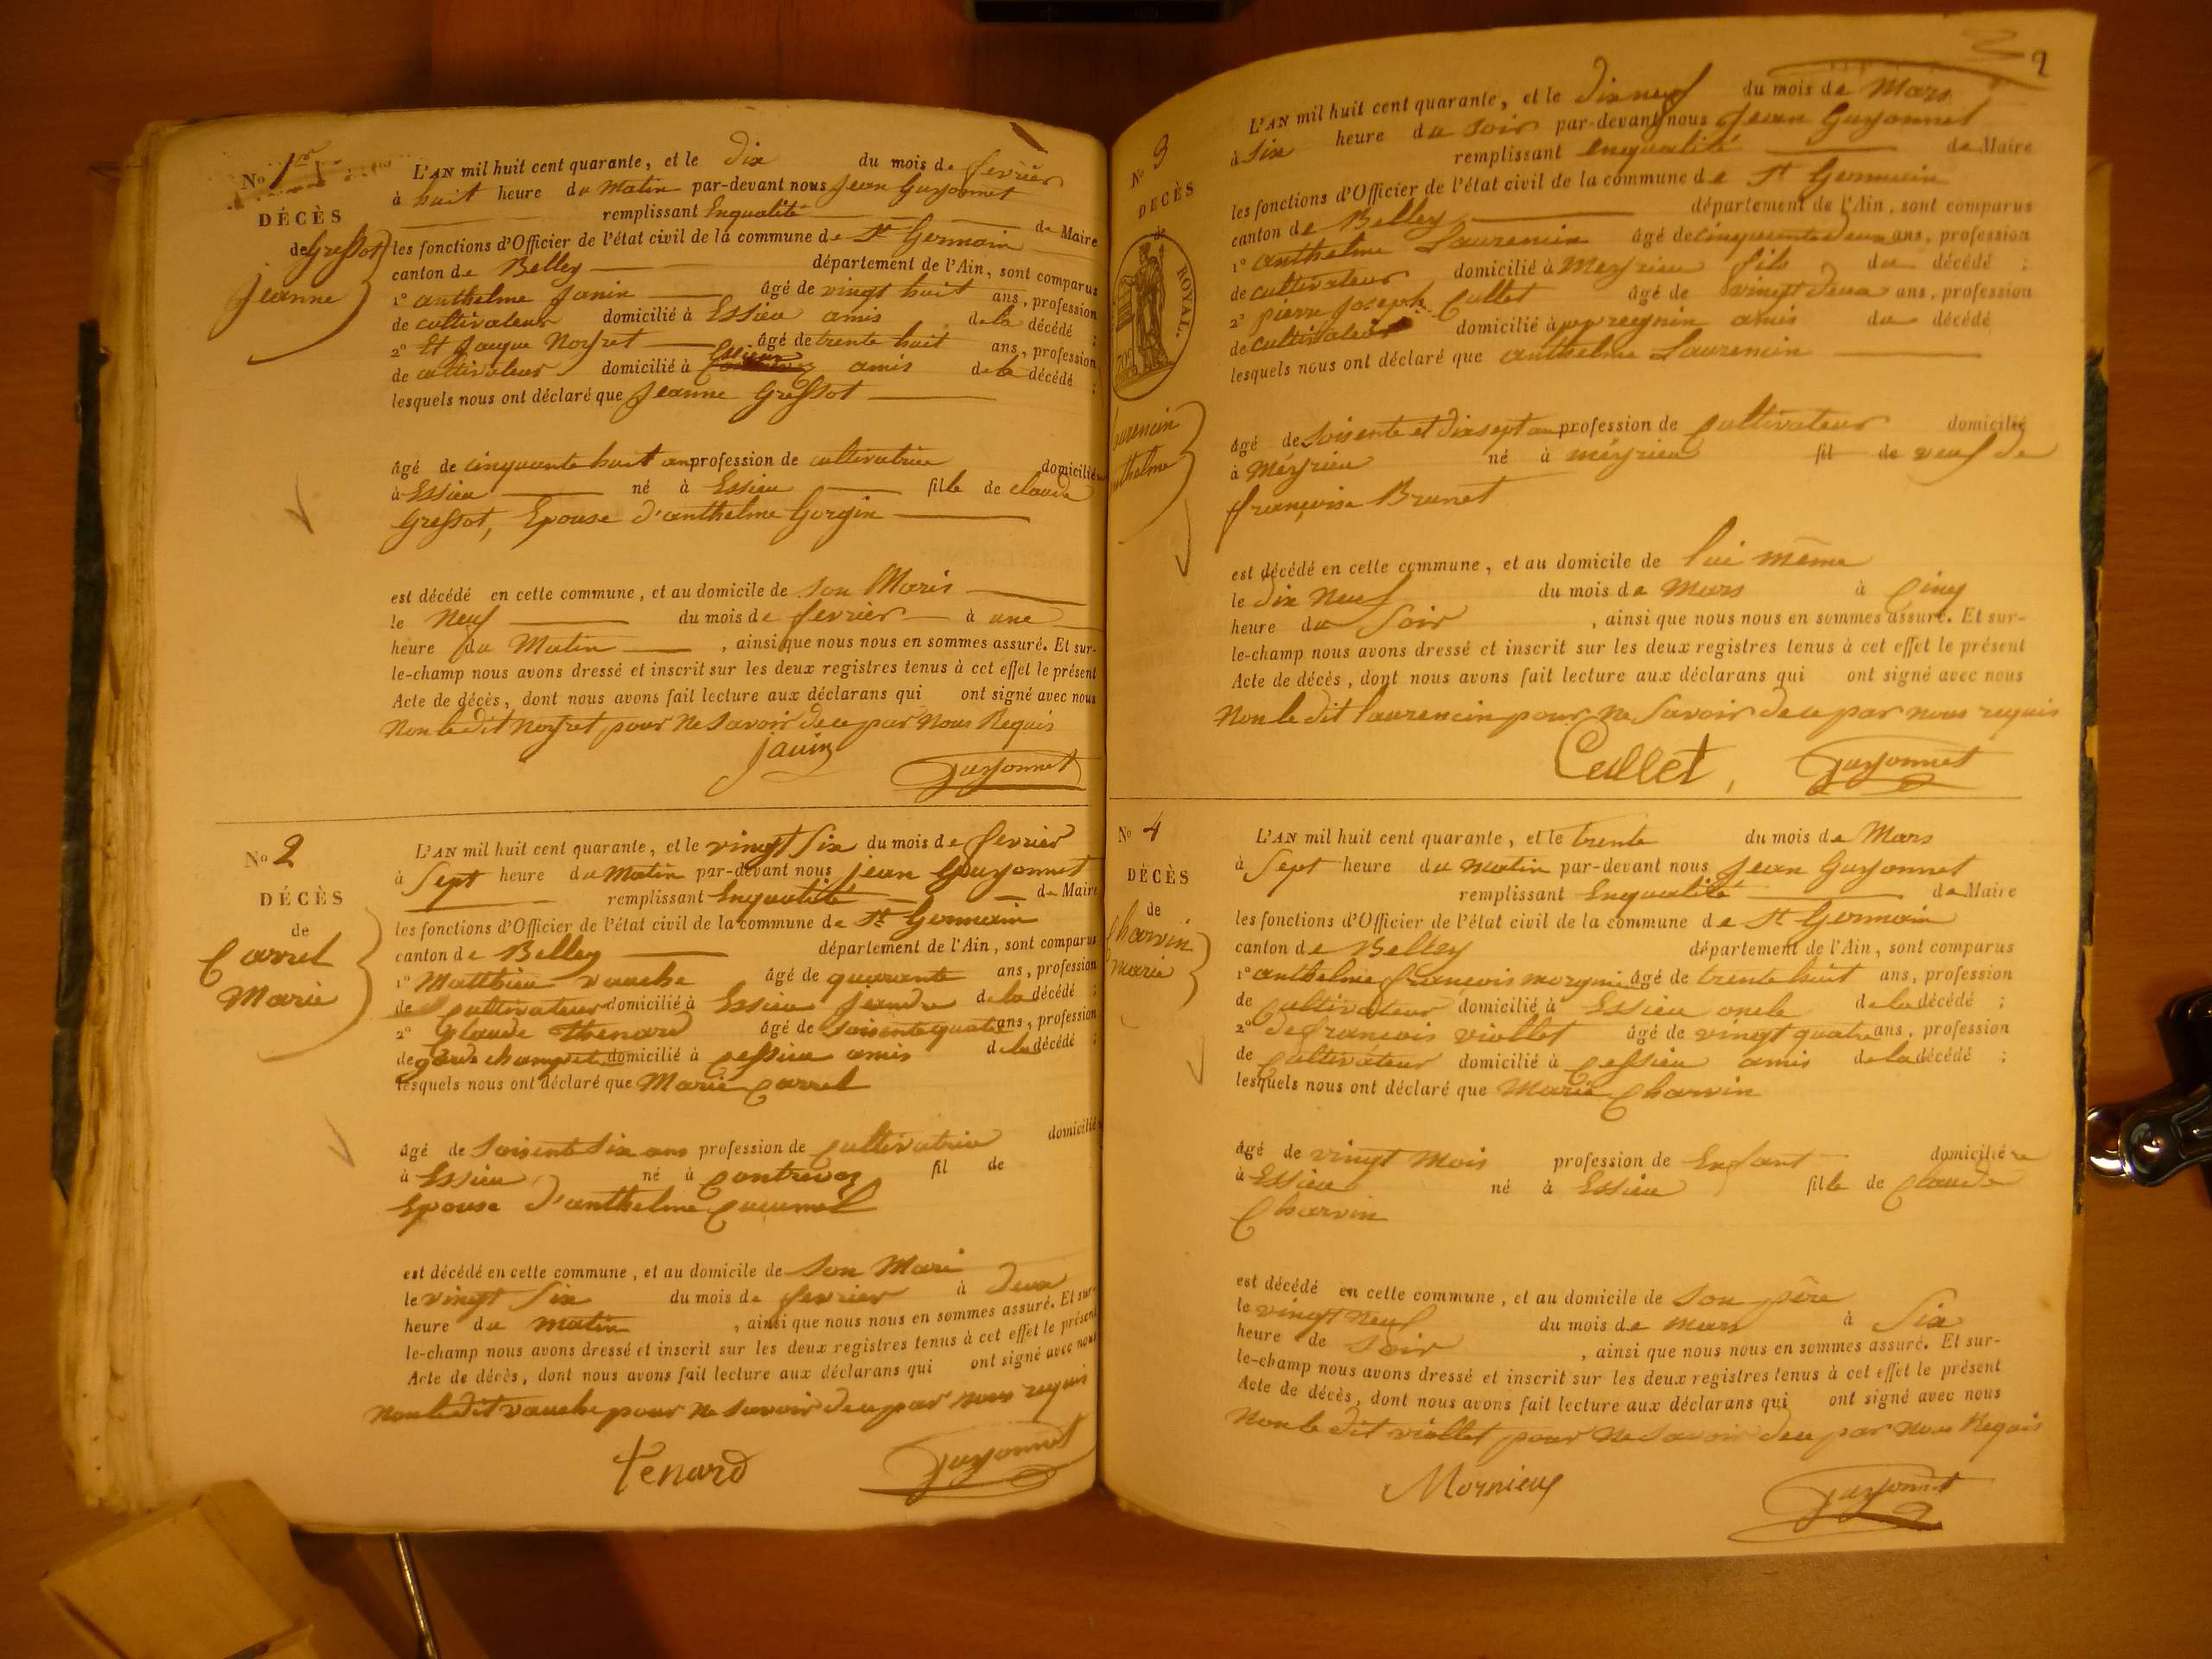 No 1er
DÉCÈS
de Gressot
Jeanne
L'AN mil huit cent quarante, et le dix du mois de fevrier
à huit heure du Matin par-devant nous Jean Guyonnet
remplissant Enqualité de Maire
les fonctions d'Officier de l'état civil de la commune de St Germain
canton de Belley département de l'Ain, sont comparus
1° anthelme Janin âgé de vingt huit ans, profession
de cultivateur domicilié à Essieu amis de la décédé ;
2° Et Jaque Noyret âgé de trente huit ans, profession
de cultivateur domicilié à Essieux amis de la décédé ;
lesquels nous ont déclaré que Jeanne Gressot
âgé de cinquante huit an profession de cultivatrice domicilié
à Essieu né à Essieu fille de claude
Gressot, Epouse d'anthelme Gorgin
est décédé en cette commune, et au domicile de son Maris
le Neuf du mois de fevrier à une
heure du Matin , ainsi que nous nous en sommes assuré. Et sur-
le-champ nous avons dressé et inscrit sur les deux registres tenus à cet effet le présent
Acte de décès, dont nous avons fait lecture aux déclarans qui ont signé avec nous
Non le dit Noyret pour ne Savoir de ce par Nous Requis
janin Guyonnet
No 2
DÉCÈS
de
Carrel
Marie
L'AN mil huit cent quarante, et le vingt Six du mois de fevrier
à Sept heure du Matin par-devant nous jean Guyonnet
remplissant Enqualité de Maire
les fonctions d'Officier de l'état civil de la commune de St Germain
canton de Belley département de l'Ain, sont comparus
1° Matthieu vauche âgé de quarante ans, profession
de Cultivateur domicilié à Essieu Jeandre de la décédé ;
2° Claude Thenard âgé de Soisente quatre ans, profession
de garde champetre domicilié à Cessieu amis de la décédé ;
lesquels nous ont déclaré que Marie Carrel
âgé de Soisente Six ans profession de Cultivatrice domicilié
à Essieu né à Contrevoz fil de
Epouse d'anthelme Cucumel
est décédé en cette commune, et au domicile de Son Mari
le vingt Six du mois de fevrier à deux
heure du matin , ainsi que nous nous en sommes assuré. Et sur-
le-champ nous avons dressé et inscrit sur les deux registres tenus à cet effet le présent
Acte de décès, dont nous avons fait lecture aux déclarans qui ont signé avec nous
Non le dit vauche pour ne Savoir de ce par nous requis
tenard Guyonnet
2
No 3
DÉCÈS
de
ROYAL.
Laurencin
anthelme
L'AN mil huit cent quarante, et le dix neuf du mois de Mars
à Six heure du soir par-devant nous Jean Guyonnet
remplissant Enqualité de Maire
les fonctions d'Officier de l'état civil de la commune de St Germain
canton de Belley département de l'Ain, sont comparus
1° anthelme Laurencin âgé de cinquante deux ans, profession
de cultivateur domicilié à Meyrieu fils du décédé ;
2° pierre Joseph Cullet âgé de vingt deux ans, profession
de cultivateur domicilié à appregnin amis du décédé
lesquels nous ont déclaré que anthelme Laurencin
âgé de Soisente et dixsept an profession de Cultivateur domicilié
à Méyrieu né à méyrieu fil de veuf de
françoise Brunet
est décédé en cette commune, et au domicile de lui même
le dix Neuf du mois de Mars à Cinq
heure du Soir , ainsi que nous nous en sommes assuré. Et sur-
le-champ nous avons dressé et inscrit sur les deux registres tenus à cet effet le présent
Acte de décès, dont nous avons fait lecture aux déclarans qui ont signé avec nous
Non le dit laurencin pour ne Savoir de ce par nous requis
Cullet, Guyonnet
No 4
DÉCÈS
de
Charvin
marie
L'AN mil huit cent quarante, et le trente du mois de Mars
à Sept heure du matin par-devant nous Jean Guyonnet
remplissant Enqualité de Maire
les fonctions d'Officier de l'état civil de la commune de St Germain
canton de Belley département de l'Ain, sont comparus
1° anthelme françois mornieu âgé de trente huit ans, profession
de Cultivateur domicilié à Essieu oncle de la décédé ;
2° de françois viollet âgé de vingt quatre ans, profession
de Cultivateur domicilié à Cessieu amis de la décédé ;
lesquels nous ont déclaré que Marie Charvin
âgé de vingt Mois profession de Enfant domiciliée
à Essieu né à Essieu fille de Claude
Charvin
est décédé en cette commune, et au domicile de Son père
le vingt neuf du mois de mars à Six
heure de Soir , ainsi que nous nous en sommes assuré. Et sur-
le-champ nous avons dressé et inscrit sur les deux registres tenus à cet effet le présent
Acte de décès, dont nous avons fait lecture aux déclarans qui ont signé avec nous
Non le dit viollet pour ne Savoir de ce par nous Requis
Mornieux Guyonnet